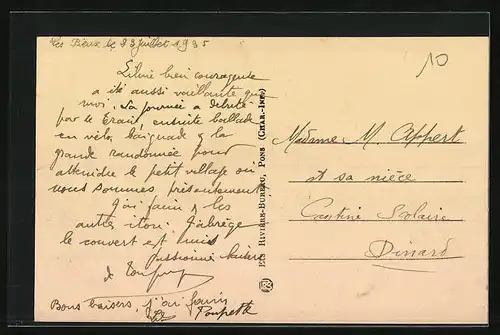 Les Baux le 23 Juillet 1935
10
bien courageuse
a été aussi vaillante que
moi. La journée a débuté
par le Train, ensuite ballade
en vélo, baignade & la
grande randonnée pour
atteindre le petit village où
nous sommes présentement
J'ai faim & les
autres itou. J'abrège
le couvert est mis
baisers
de
Bons baisers, j'ai faim
Poupette
Ets RIVIÈRE-BUREAU, PONS (CHAR.-INF.)
Madame M. Appert
et sa nièce
Cantine Scolaire
Dinard